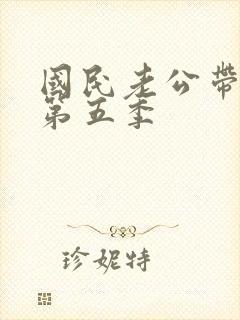 國民老公帶
第五季
珍妮特